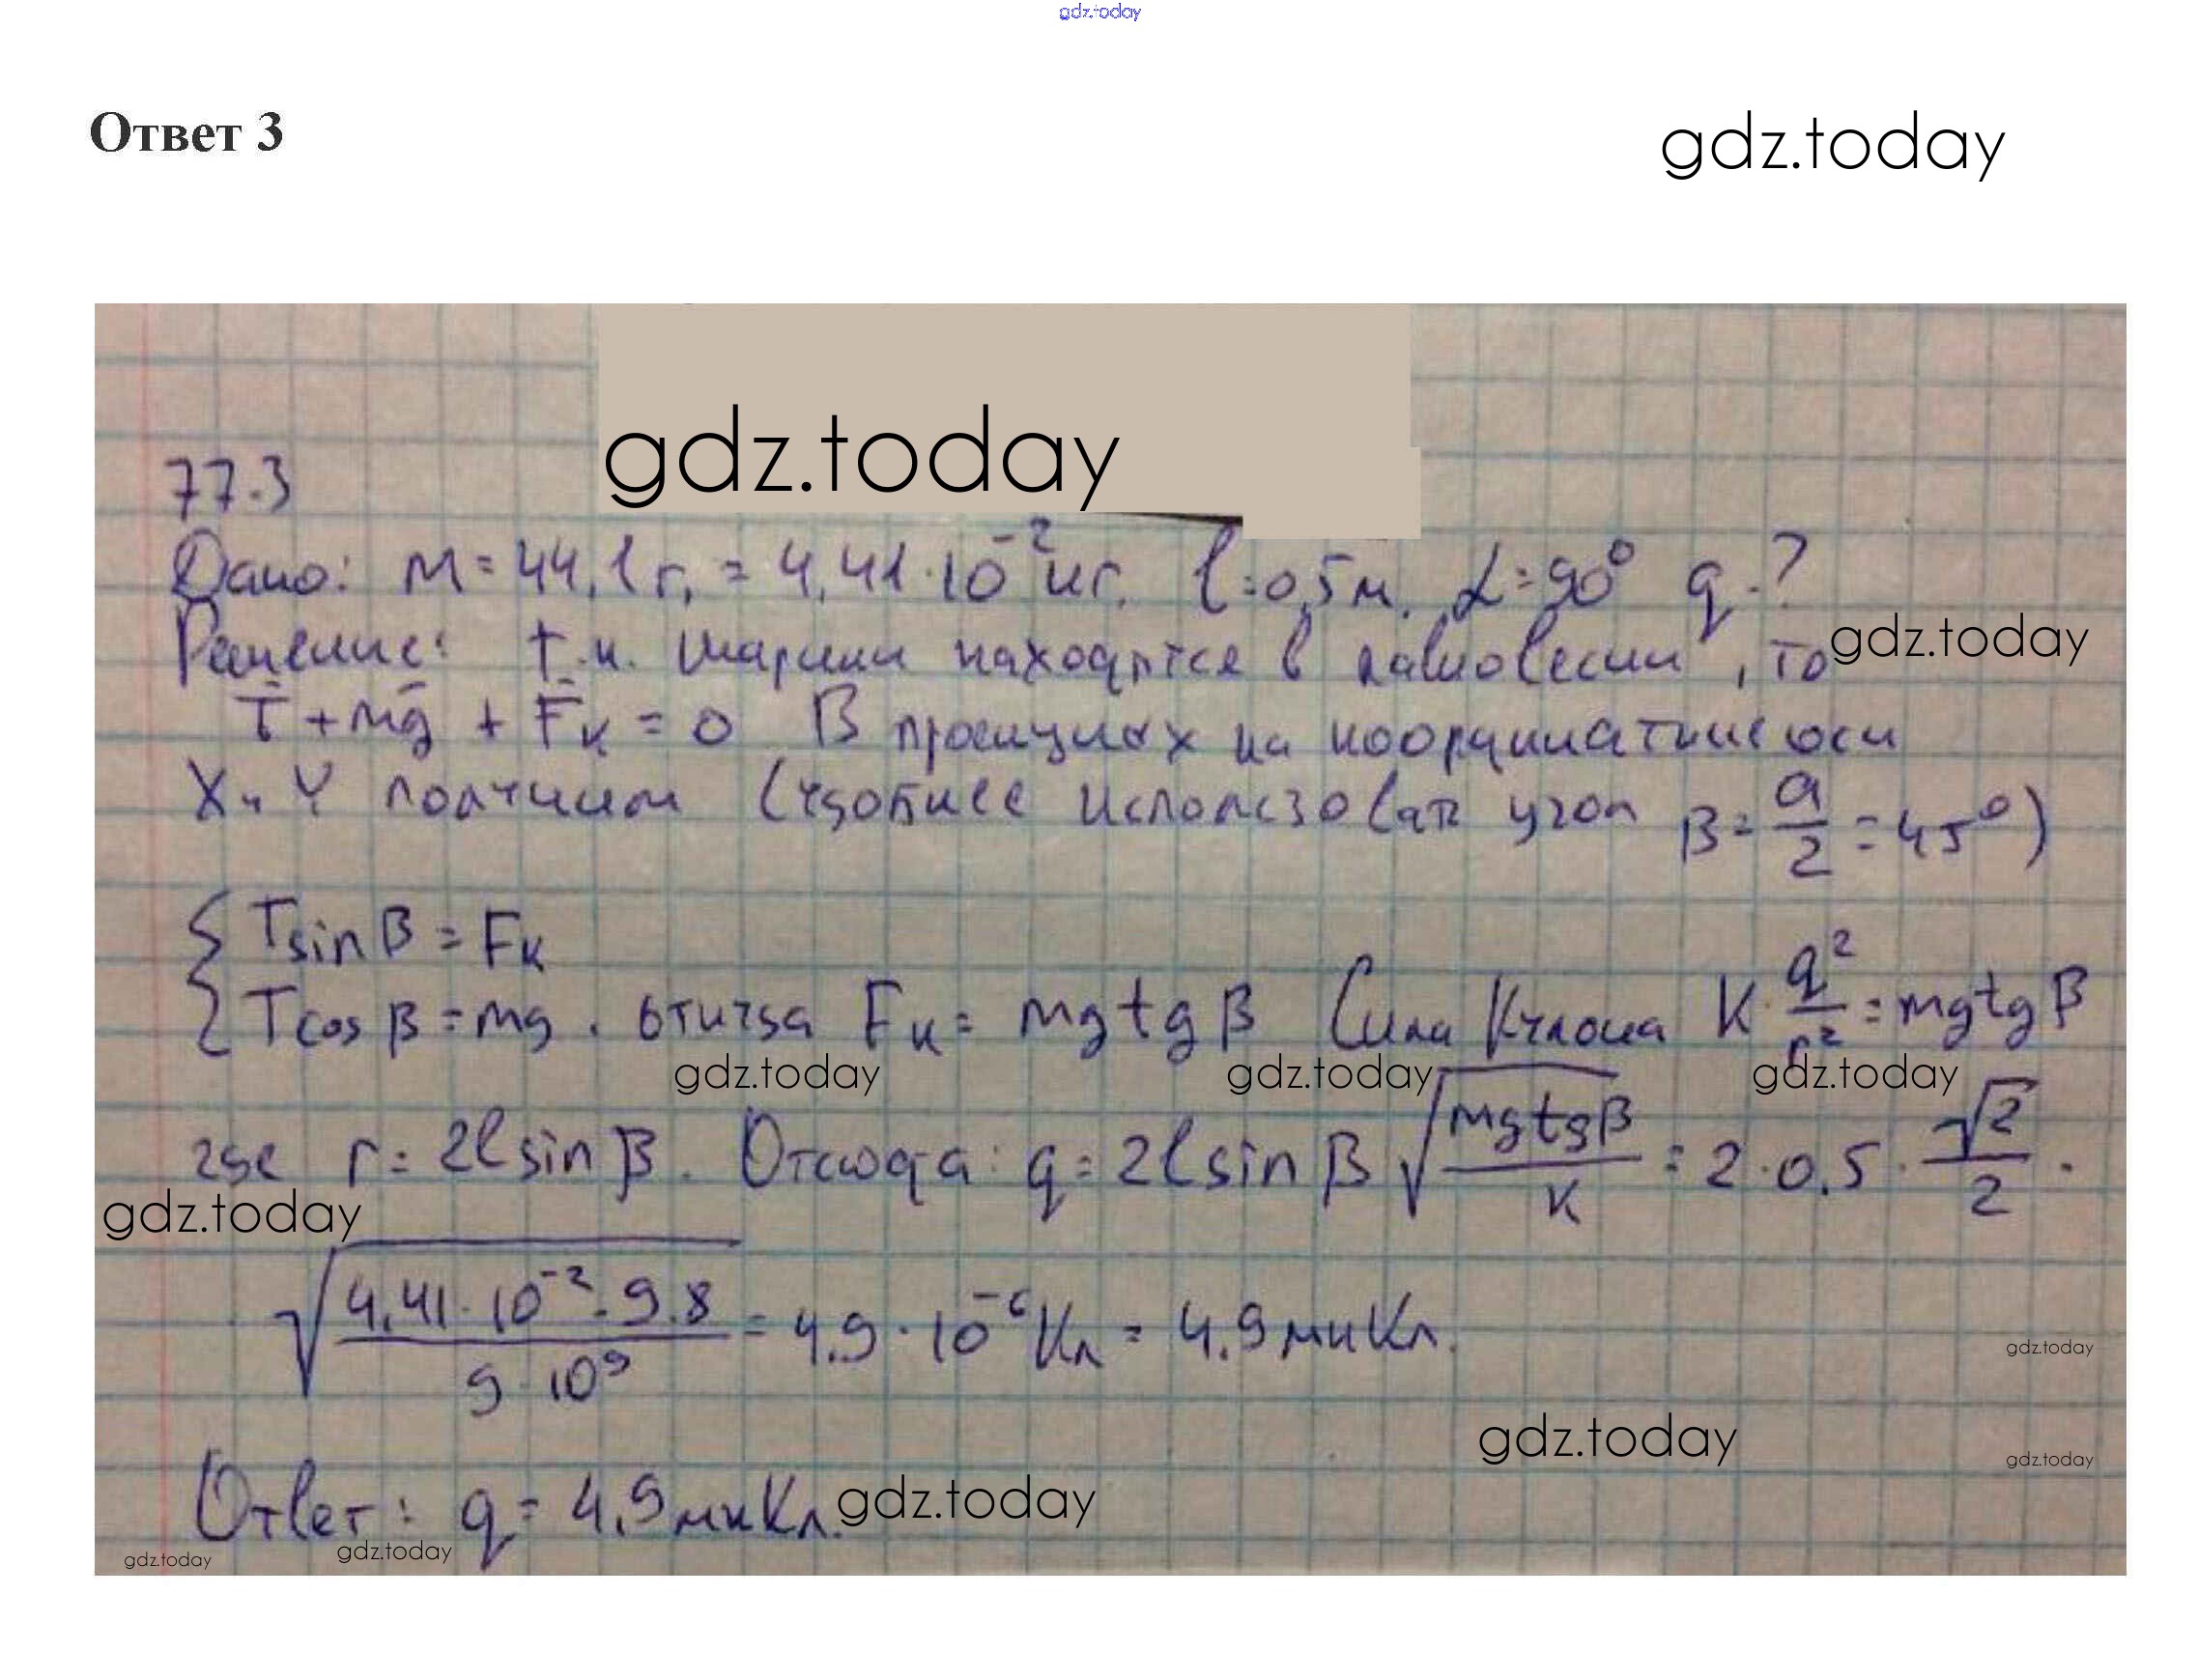 gdz.today
Ответ 3
gdz.today
gdz.today
77.3
Дано: m = 44,1 г, = 4,41·10⁻² кг. l = 0,5 м. α = 90° q - ?
Решение: т.к. шарики находятся в равновесии, то
gdz.today
T̄ + mḡ + F̄к = 0 В проекциях на координатные оси
X и Y получим (удобнее использовать угол β = α/2 = 45°)
{ T sin β = Fк
{ T cos β = mg. отсюда Fк = mg tg β Сила Кулона K · q²/r² = mg tg β
gdz.today gdz.today gdz.today
где r = 2l sin β. Отсюда: q = 2l sin β √(mg tg β / K) = 2 · 0,5 · √2/2 ·
gdz.today
· √(4,41 · 10⁻² · 9.8 / 9 · 10⁹) = 4.9 · 10⁻⁶ Кл = 4.9 мкКл.
gdz.today
gdz.today
gdz.today
Ответ: q = 4,9 мкКл.
gdz.today
gdz.today gdz.today